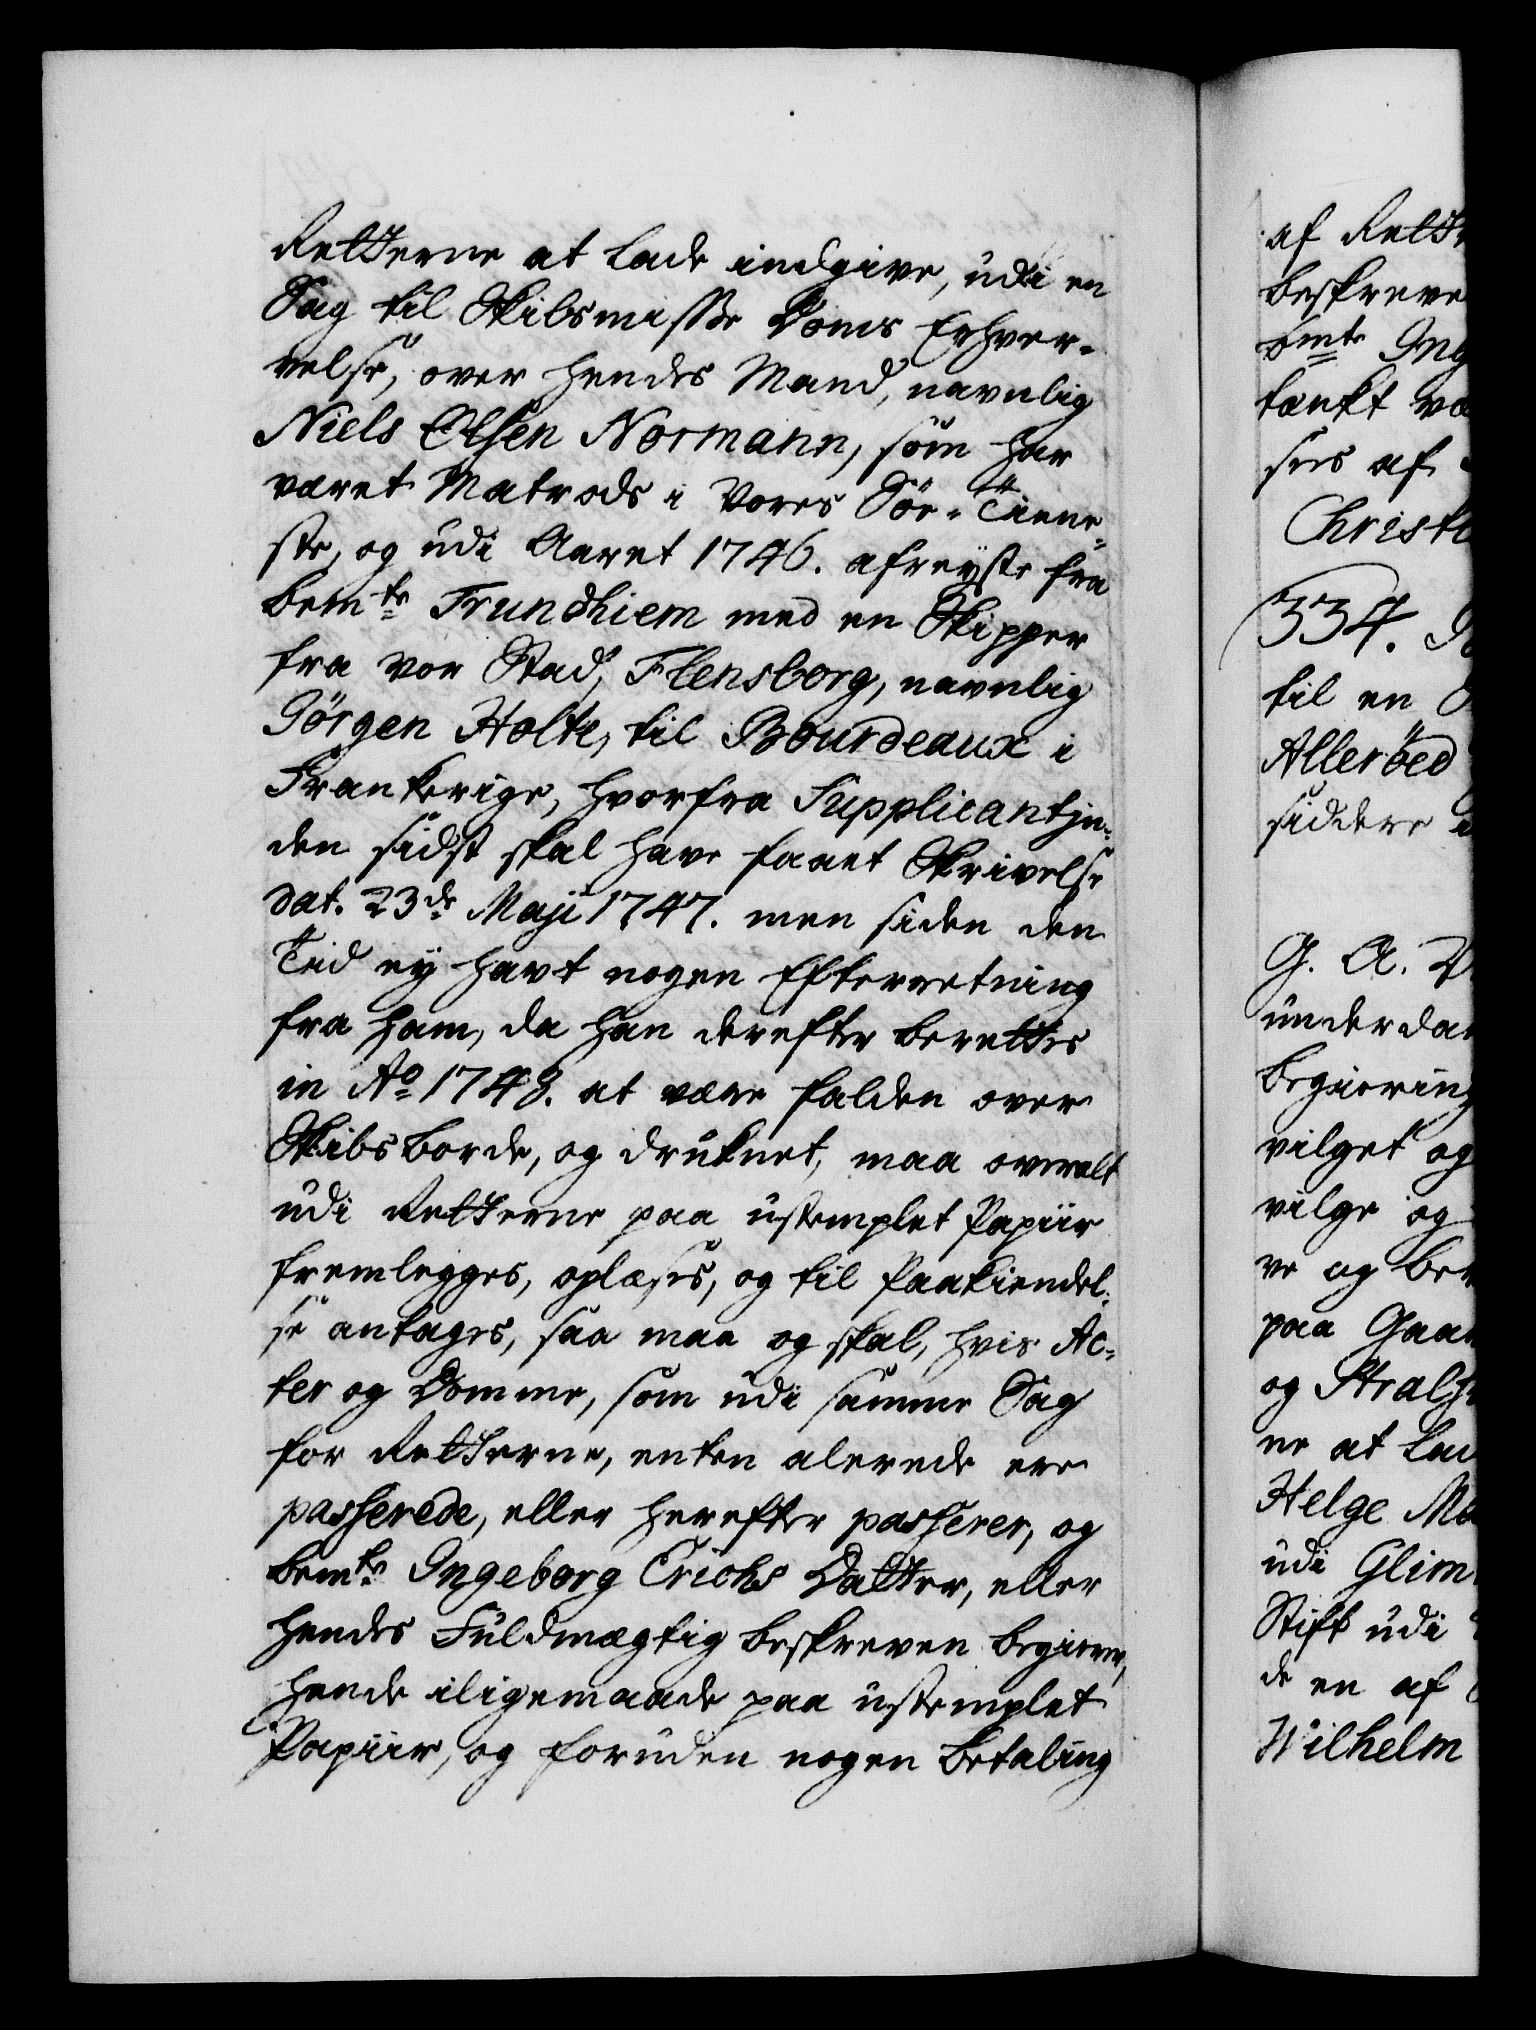 Retterne at lade indgive, udi en
Sag til Skilsmisse Doms Erhver-
velse, over hendes Mand, navnlig
Niels Olsen Normann, som har
været Matrods i Vores Söe-Tiene-
ste, og udi Aaret 1746. afreyste fra
bemte Trundhiem med en Skipper
fra vor Stad, Flensborg, navnlig
Jörgen Holte, til Bourdeaux i
Frankerige, hvorfra Supplicantin-
den sidst skal have faaet Skrivelse
dat. 23de Maji 1747. men siden den
Tid ey havt nogen Efterretning
fra ham, da han derefter berettes
in Ao 1748. at være falden over
Skibsborde, og druknet, maa overalt
udi Retterne paa ustemplet Papiir
fremlegges, oplæses, og til Paakiendel-
se antages, saa maa og skal, hvis Ac-
ter og Domme, som udi samme Sag
for Retterne, enten alerede ere
passerede, eller herefter passerer, og
bemte Ingeborg Erichs Datter, eller
hendes Fuldmægtig beskreven begierer,
hende iligemaade paa ustemplet
Papiir, og foruden nogen Betaling
af Rette
beskreve
bmte Ing
tænkt væ
ses af
Christi
334.
til en
Alleröed
siddere
G. A. V.
underdan
begiering
vilget og
vilge og
ve og be
paa Gaar
og Strals
ne at lad
Helge Ma
udi Glim
Stift udi
de en af
Wilhelm